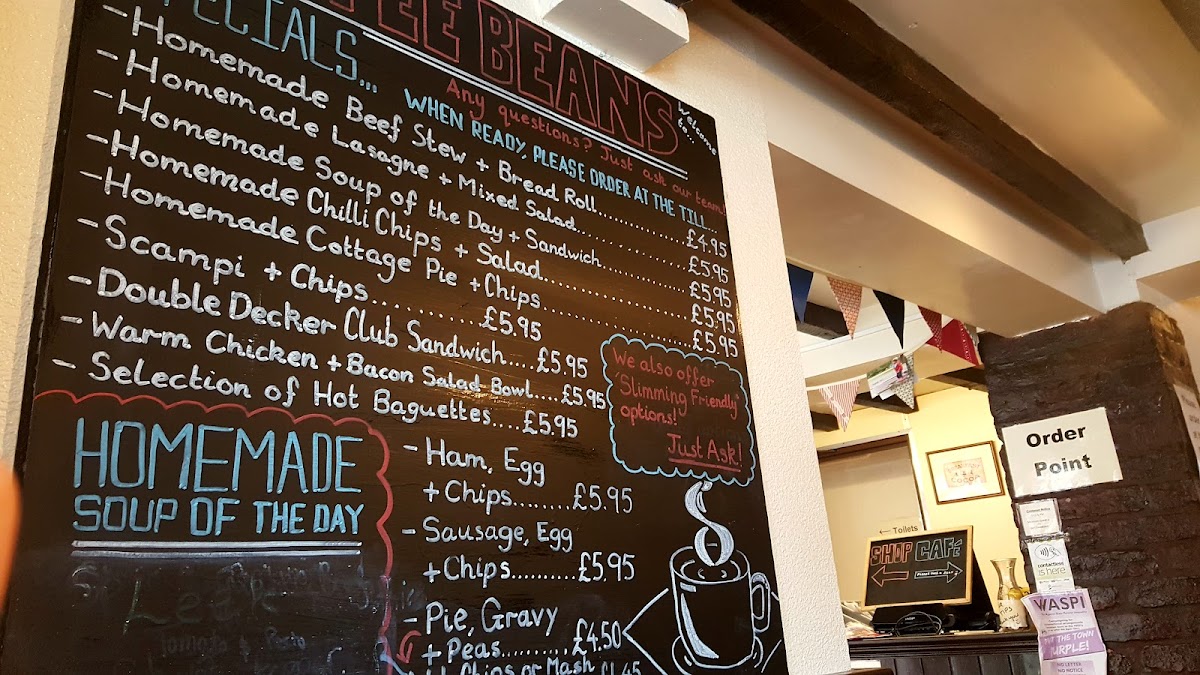 Welcome
to...
BEANS
SPECIALS...
Any questions? Just ask our team!
WHEN READY, PLEASE ORDER AT THE TILL...
- Homemade Beef Stew + Bread Roll............£4.95
- Homemade Lasagne + Mixed Salad............£5.95
- Homemade Soup of the Day + Sandwich............£5.95
- Homemade Chilli Chips + Salad............£5.95
- Homemade Cottage Pie + Chips............£5.95
- Scampi + Chips............£5.95
- Double Decker Club Sandwich....£5.95
- Warm Chicken + Bacon Salad Bowl....£5.95
- Selection of Hot Baguettes....£5.95
We also offer
"Slimming Friendly"
options!
Just Ask!
HOMEMADE
SOUP OF THE DAY
- Ham, Egg
+ Chips.......£5.95
- Sausage, Egg
+ Chips..........£5.95
- Pie, Gravy
+ Peas..........£4.50
+ Chips or Mash £1.45
Order
Point
← Toilets
SHOP CAFÉ
contactless
is here
WASPI
THE TOWN
PURPLE!
NO LETTER
NO NOTICE